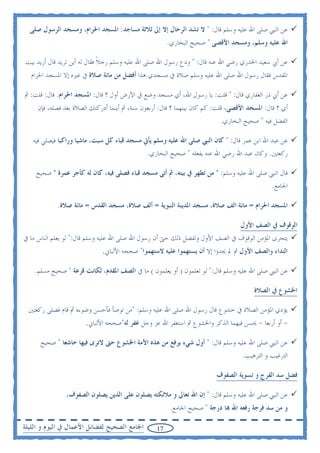 عن النبي صلى الله عليه وسلم قال: " لا تشد الرحال إلا إلى ثلاثة مساجد: المسجد الحرام، ومسجد الرسول صلى
الله عليه وسلم، ومسجد الأقصى " صحيح البخاري.
عن أبي سعيد الخدري رضي الله عنه قال: " ودع رسول الله صلى الله عليه وسلم رجلاً فقال له أين تريد قال أريد بيت
المقدس فقال رسول الله صلى الله عليه وسلم صلاة في مسجدي هذا أفضل من مائة صلاة في غيره إلا المسجد الحرام
عن أبي ذر الغفاري قال: " قلت: يا رسول الله، أي مسجد وضع في الأرض أول ؟ قال: المسجد الحرام. قال: قلت: ثم
أي ؟ قال: المسجد الأقصى، قلت: كم كان بينهما ؟ قال: أربعون سنة، ثم أينما أدركتك الصلاة بعد فصله، فإن
الفضل فيه " صحيح البخاري.
عن عبد الله ابن عمر قال: " كان النبي صلى الله عليه وسلم يأتي مسجد قباء كل سبت، ماشيا وراكبا فيصلي فيه
ركعتين. وكان عبد الله رضي الله عنه يفعله " صحيح البخاري.
قال النبي صلى الله عليه وسلم: " من تطهر في بيته، ثم أتى مسجد قباء فصلى فيه، كان له كأجر عمرة " صحيح
الجامع.
المسجد الحرام = مائة الف صلاة، مسجد المدينة النبوية = ألف صلاة، مسجد القدس = مائة صلاة.
الوقوف في الصف الأول
يتحرى المؤمن الوقوف في الصف الأول ولفضل ذلك حتى أن رسول الله صلى الله عليه وسلم قال: " لو يعلم الناس ما في
النداء والصف الأول ثم لم يجدوا إلا أن يستهموا عليه لاستهموا" صححه الألباني.
عن النبي صلى الله عليه وسلم قال: " لو تعلمون ( أو يعلمون ) ما في الصف المقدم، لكانت قرعة " صحيح مسلم.
الخشوع في الصلاة
يؤدي المؤمن الصلاة في خشوع قال رسول الله صلى الله عليه وسلم: "من توضأ فأحسن وضوءه ثم قام فصلى ركعتين
- أو أربعا - يحسن فيهما الذكر والخشوع ثم استغفر الله عز وجل غفر له"صححه الألباني.
عن النبي صلى الله عليه وسلم قال: " أول شيء يرفع من هذه الأمة الخشوع حتى لا ترى فيها خاشعا " صحيح
الترغيب و الترهيب.
فضل سد الفرج و تسوية الصفوف
عن النبي صلى الله عليه وسلم قال: " إن الله تعالى و ملائكته يصلون على الذين يصلون الصفوف،
و من سد فرجة رفعه الله بها درجة " صحيح الجامع.
17 الجامع الصحيح لفضائل الأعمال في اليوم و الليلة